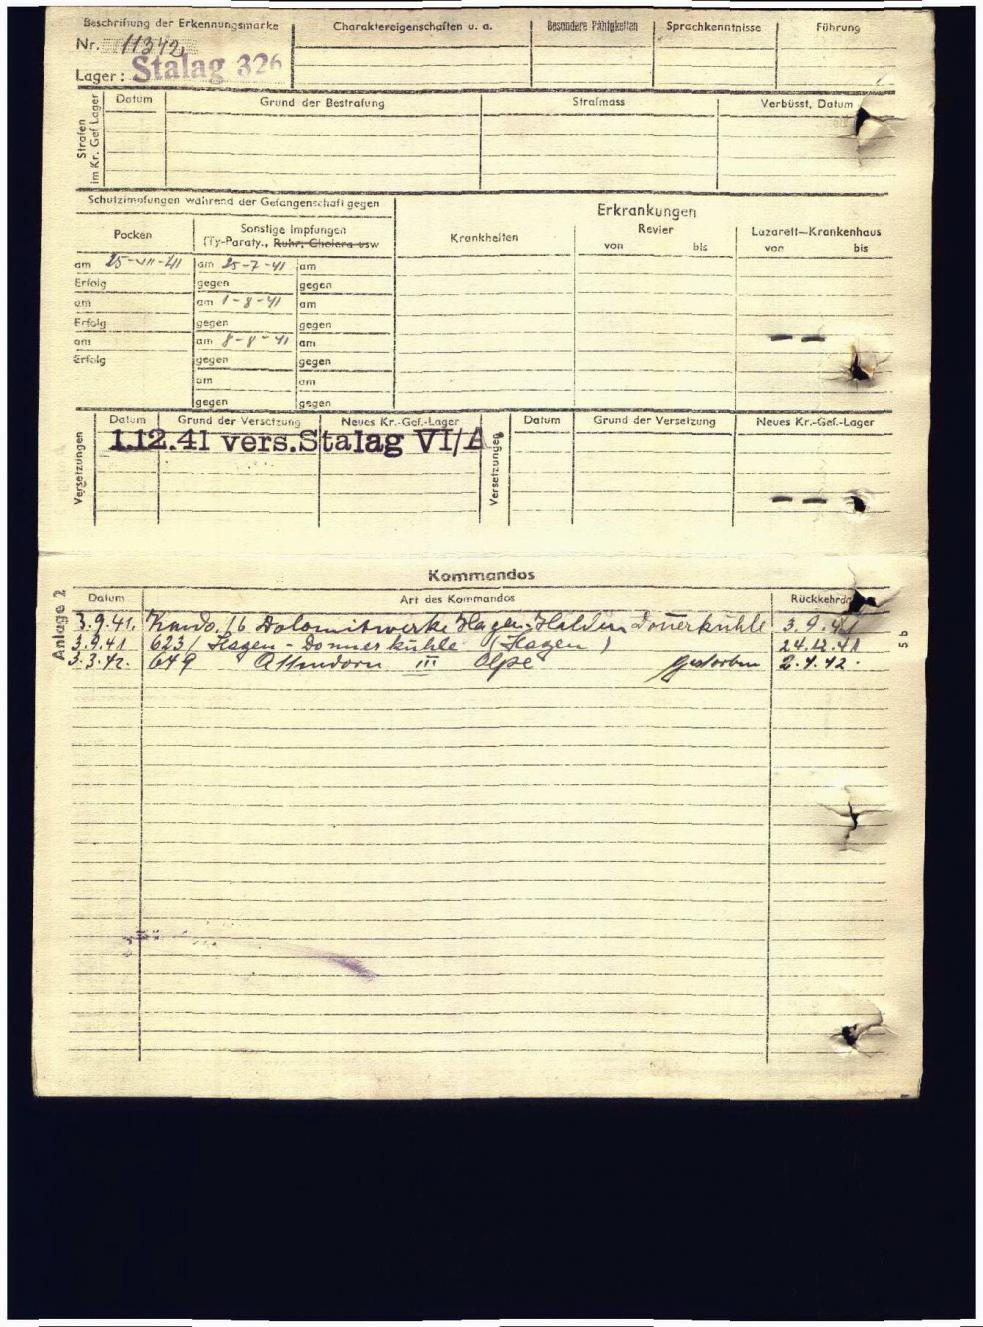 Beschriftung der Erkennungsmarke
Nr. 11342
Lager: Stalag 326
Charaktereigenschaften u. a.
Besondere Fähigkeiten
Sprachkenntnisse
Führung
Strafen im Kr. Gef Lager
Datum
Grund der Bestrafung
Strafmass
Verbüsst, Datum
Schutzimpfungen während der Gefangenschaft gegen
Pocken
Sonstige Impfungen
(Ty-Paraty., Ruhr, Cholera usw
am 25-VII-41 am 25-7-41 am
Erfolg gegen gegen
am am 1-8-41 am
Erfolg gegen gegen
am am 8-8-41 am
Erfolg gegen gegen
am am
gegen gegen
Erkrankungen
Krankheiten
Revier
von bis
Lazarett—Krankenhaus
von bis
Versetzungen
Datum Grund der Versetzung Neues Kr.-Gef.-Lager
1.12.41 vers. Stalag VI/A
Versetzungen
Datum Grund der Versetzung Neues Kr.-Gef.-Lager
Anlage 2
Kommandos
Datum Art des Kommandos
3.9.41. Kmdo. 16 Dolomitwerke Hagen-Halden Donerkühle 3.9.41
3.9.41 623 / Hagen - Donnerkühle (Hagen) 24.12.41
3.3.42. 649 Attendorn III Olpe gestorben 2.4.42.
5b